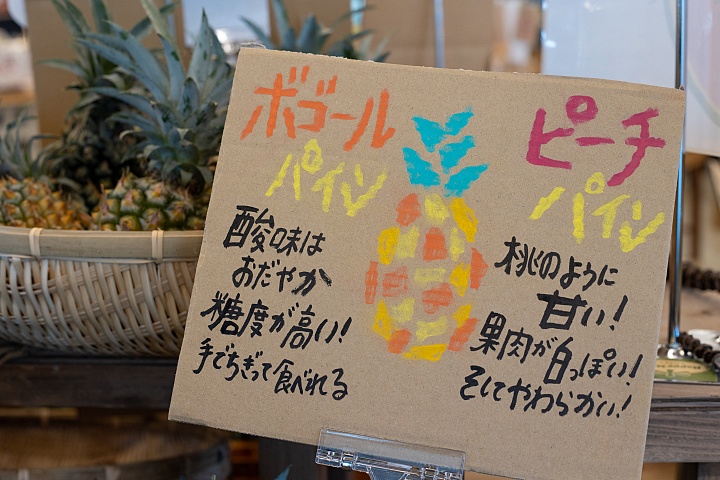 ボゴール
パイン
酸味は
おだやか
糖度が高い!
手でちぎって食べれる
ピーチ
パイン
桃のように
甘い!
果肉が白っぽい!
そしてやわらかい!